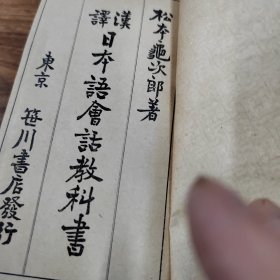 松本龜次郎著
漢譯日本語會話教科書
東京 笹川書店發行